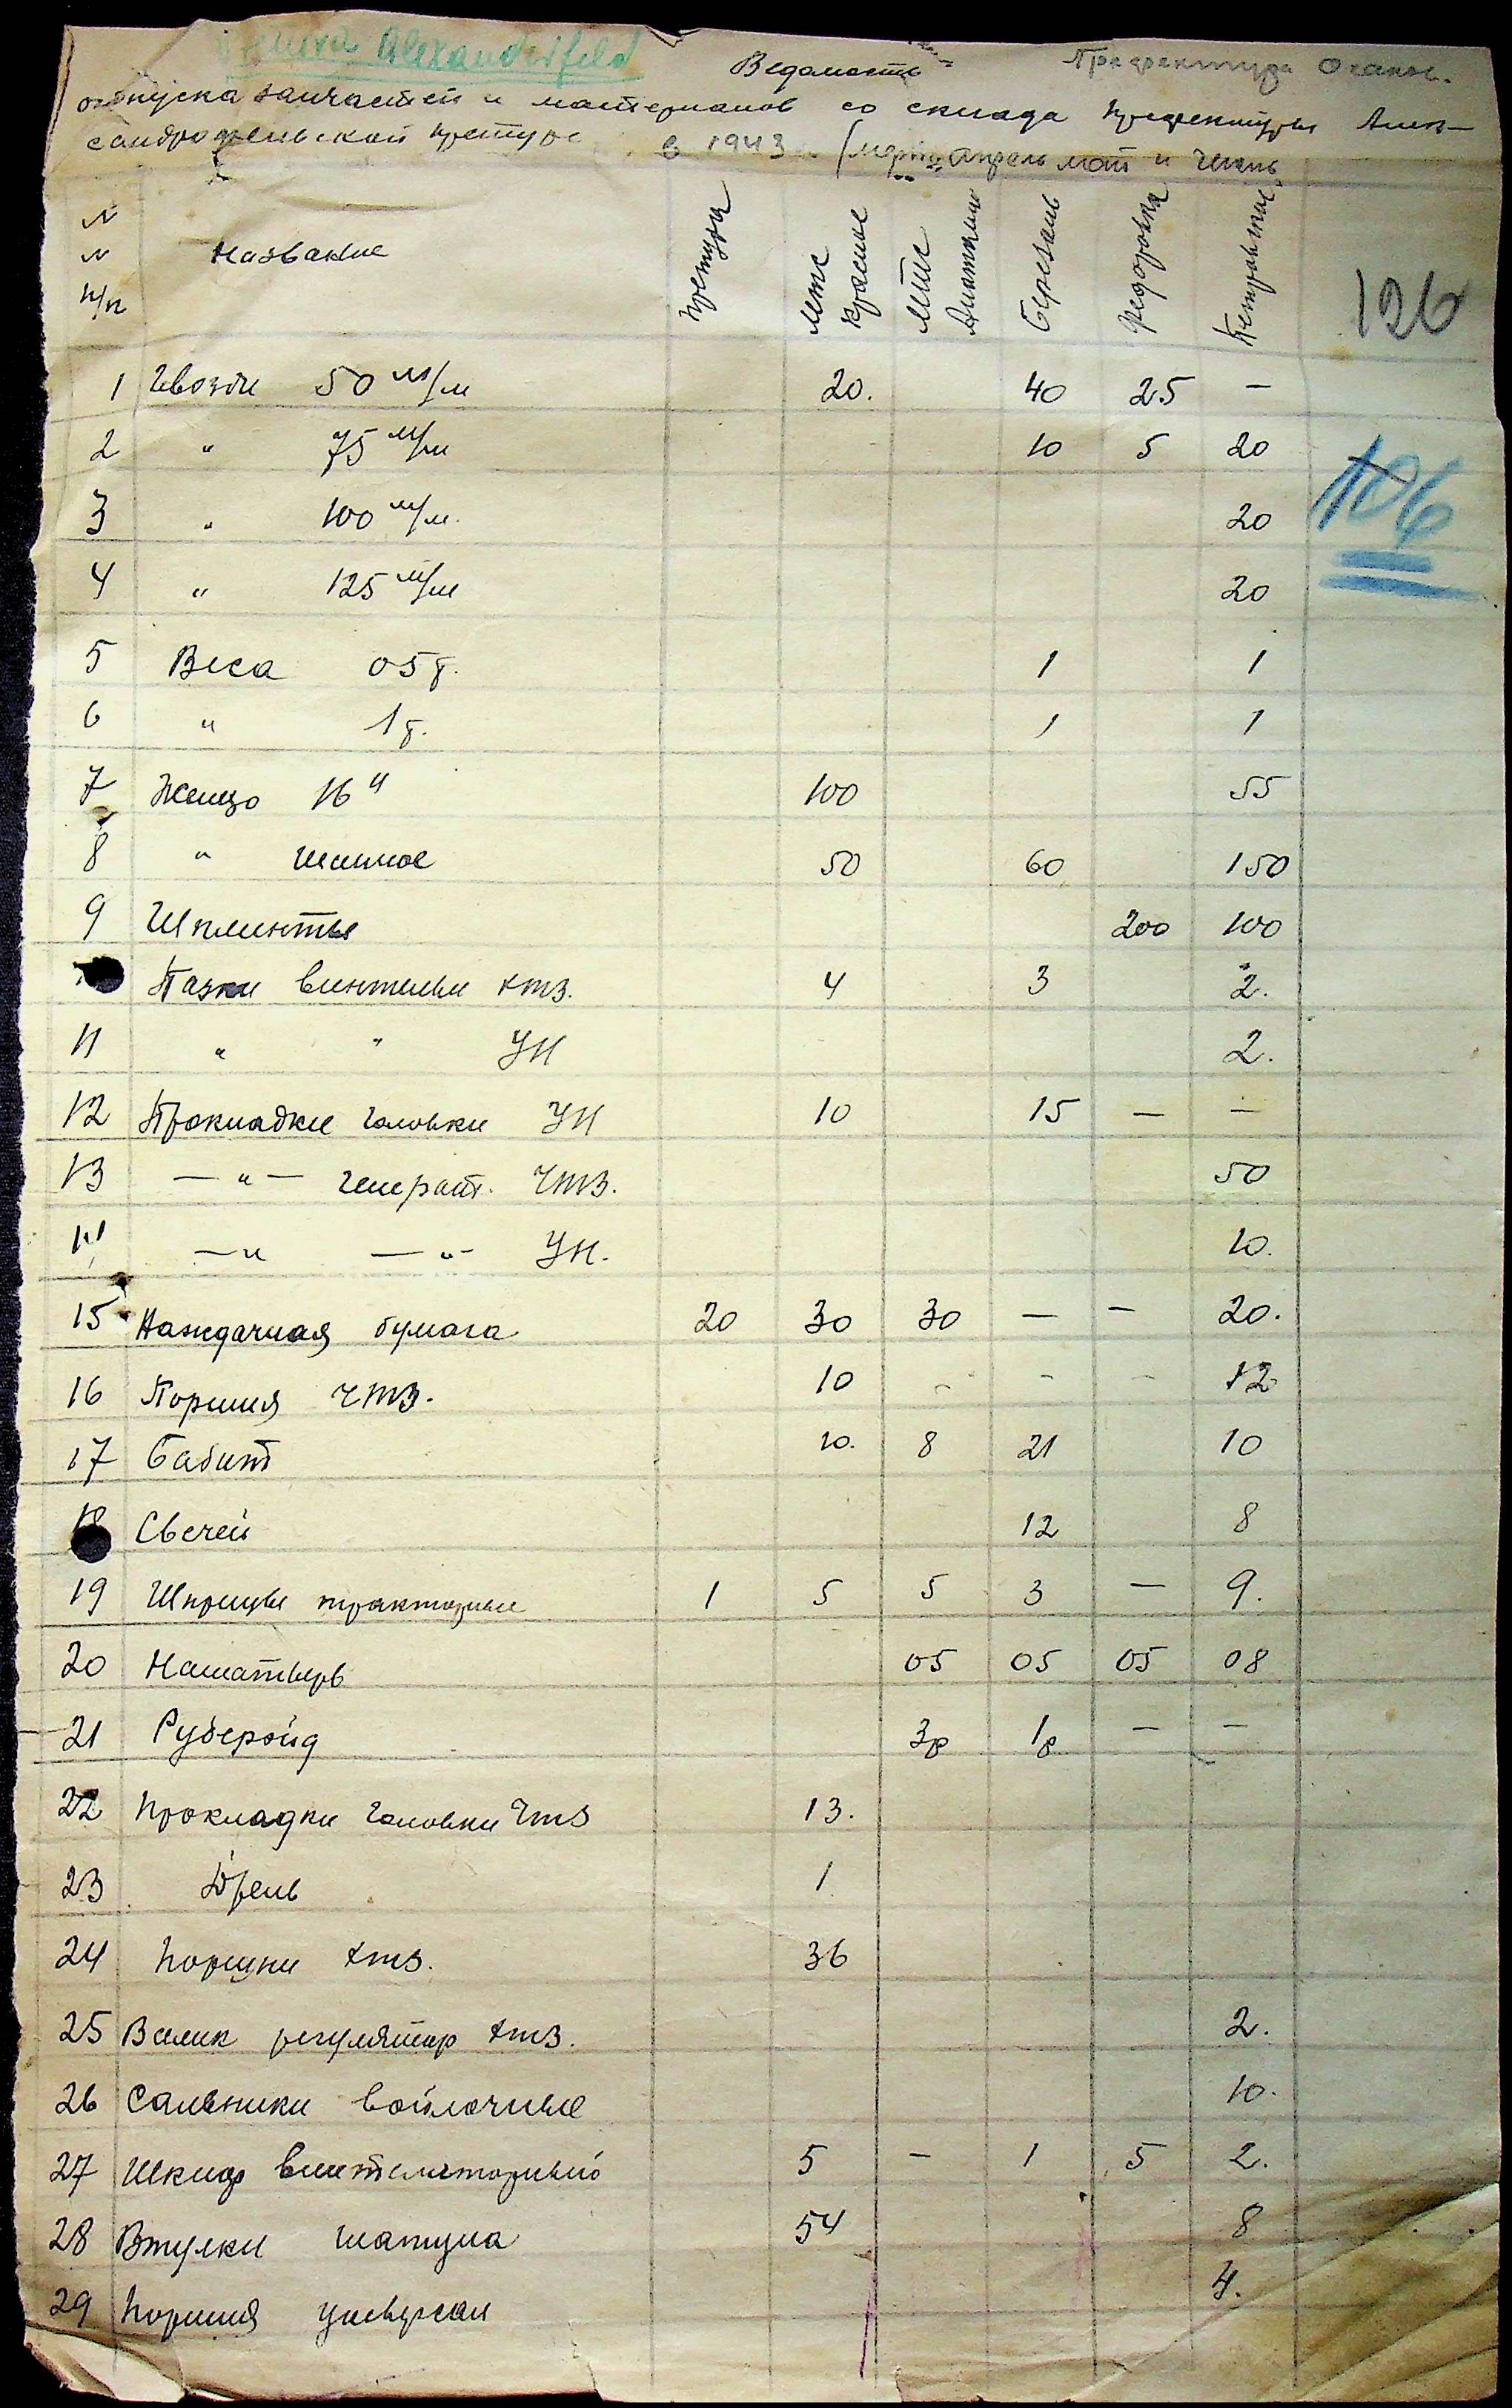 Alexanderfeld
Ведомость Префектура Очаков.
отпуска запчастей и материалов со склада префектуры Алек-
сандрфельской претуре в 1943 (март апрель май и июнь
N N п/п Название претура мтс Красное мтс Березань Федоровка 126
1 Гвозди 50 м/м 20. 40 25 -
2 " 75 м/м 10 5 20
106
3 " 100 м/м. 20
4 " 125 м/м 20
5 Веса 05 т. 1 1
6 " 1 т. 1 1
7 Железо 16" 100 55
8 " Шинное 50 60 150
9 Шплинты 200 100
Гайки вентильн хтз. 4 3 2.
11 " " УН 2.
12 Прокладки головки УН 10 15 — —
13 — " — генерат. ЧТЗ. 50
14 — " — " — УН. 10.
15 Наждачная бумага 20 30 30 — — 20.
16 Поршня ЧТЗ. 10 - - - 12
17 Бабит 10. 8 21 10
18 Свечей 12 8
19 Шприцы тракторные 1 5 5 3 — 9.
20 Нашатырь 05 05 05 08
21 Рубероид 3р 1р — —
22 Прокладки головки ЧТЗ 13.
23 Дрель 1
24 Поршни хтз. 36
25 Валик регулятор хтз. 2.
26 Сальники войлочные 10.
27 Шкив вентеляторный 5 - 1 5 2.
28 Втулки шатуна 54 8
29 Поршня универсал 4.